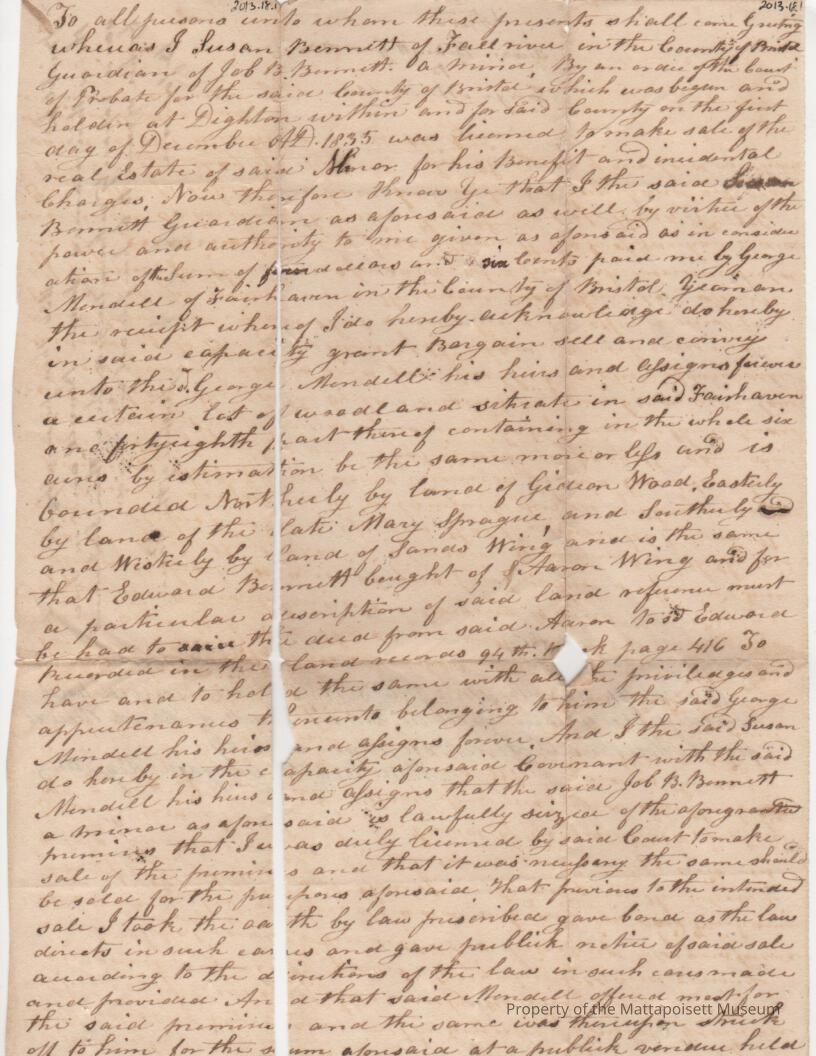 2013.18.1 2013.18.1
To all persons unto whom these presents shall come Greeting
whereas I Susan Bennett of Fallriver in the County of Bristol
Guardian of Job B. Bennett a minor, By an order of the Court
of Probate for the said County of Bristol, which was begun and
holden at Dighton within and for said County on the first
day of December AD. 1835 was licensed to make sale of the
real Estate of said Minor for his Benefit and incidental
Charges, Now therefore Know Ye that I the said Susan
Bennett Guardian as aforesaid as well by virtue of the
power and authority to me given as aforesaid as in consider
ation of the Sum of four dollars and six Cents paid me by George
Mendell of Fairhaven in the County of Bristol Yeoman
the receipt whereof I do hereby acknowledge do hereby
in said capacity grant Bargain sell and convey
unto the sd. George Mendell his heirs and assigns forever
a certain Lot of woodland situate in said Fairhaven
one fortyeighth part thereof containing in the whole six
acres by estimation be the same more or less and is
bounded Northerly by land of Gideon Wood, Easterly
by land of the late Mary Sprague and Southerly
and Westerly by land of Sands Wing and is the same
that Edward Bennett bought of Aaron Wing and for
a particular description of said land reference must
be had to the deed from said Aaron to sd Edward
Recorded in the land records 94th. Book page 416 To
have and to hold the same with all the priviledges and
appurtenances thereunto belonging to him the said George
Mendell his heirs and assigns forever. And I the said Susan
do hereby in the capacity aforesaid Covenant with the said
Mendell his heirs and assigns that the said Job B. Bennett
a minor as aforesaid is lawfully seized of the aforegranted
premises that I was duly licensed by said Court to make
sale of the premises and that it was necessary the same should
be sold for the purposes aforesaid That previous to the intended
sale I took the oath by law prescribed gave bond as the law
directs in such cases and gave publick notice of said sale
according to the directions of the law in such cases made
and provided And that said Mendell offered most for
the said premises and the same was thereupon struck
off to him for the sum aforesaid at a publick vendue held
Property of the Mattapoisett Museum